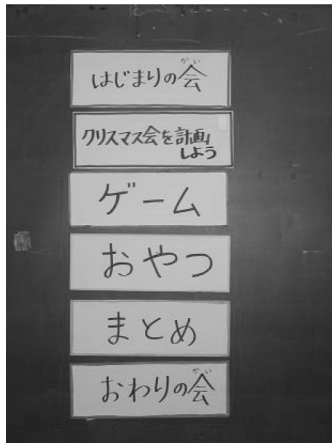 はじまりの会
かい
クリスマス会を計画
しよう
ゲーム
おやつ
まとめ
おわりの会
かい